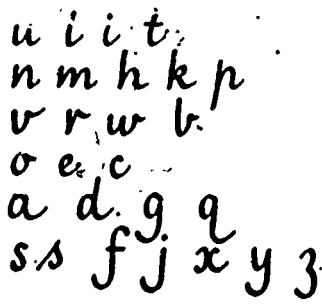 u i i t
n m h k p
v r w b
o e c
a d g q
s s f j x y z